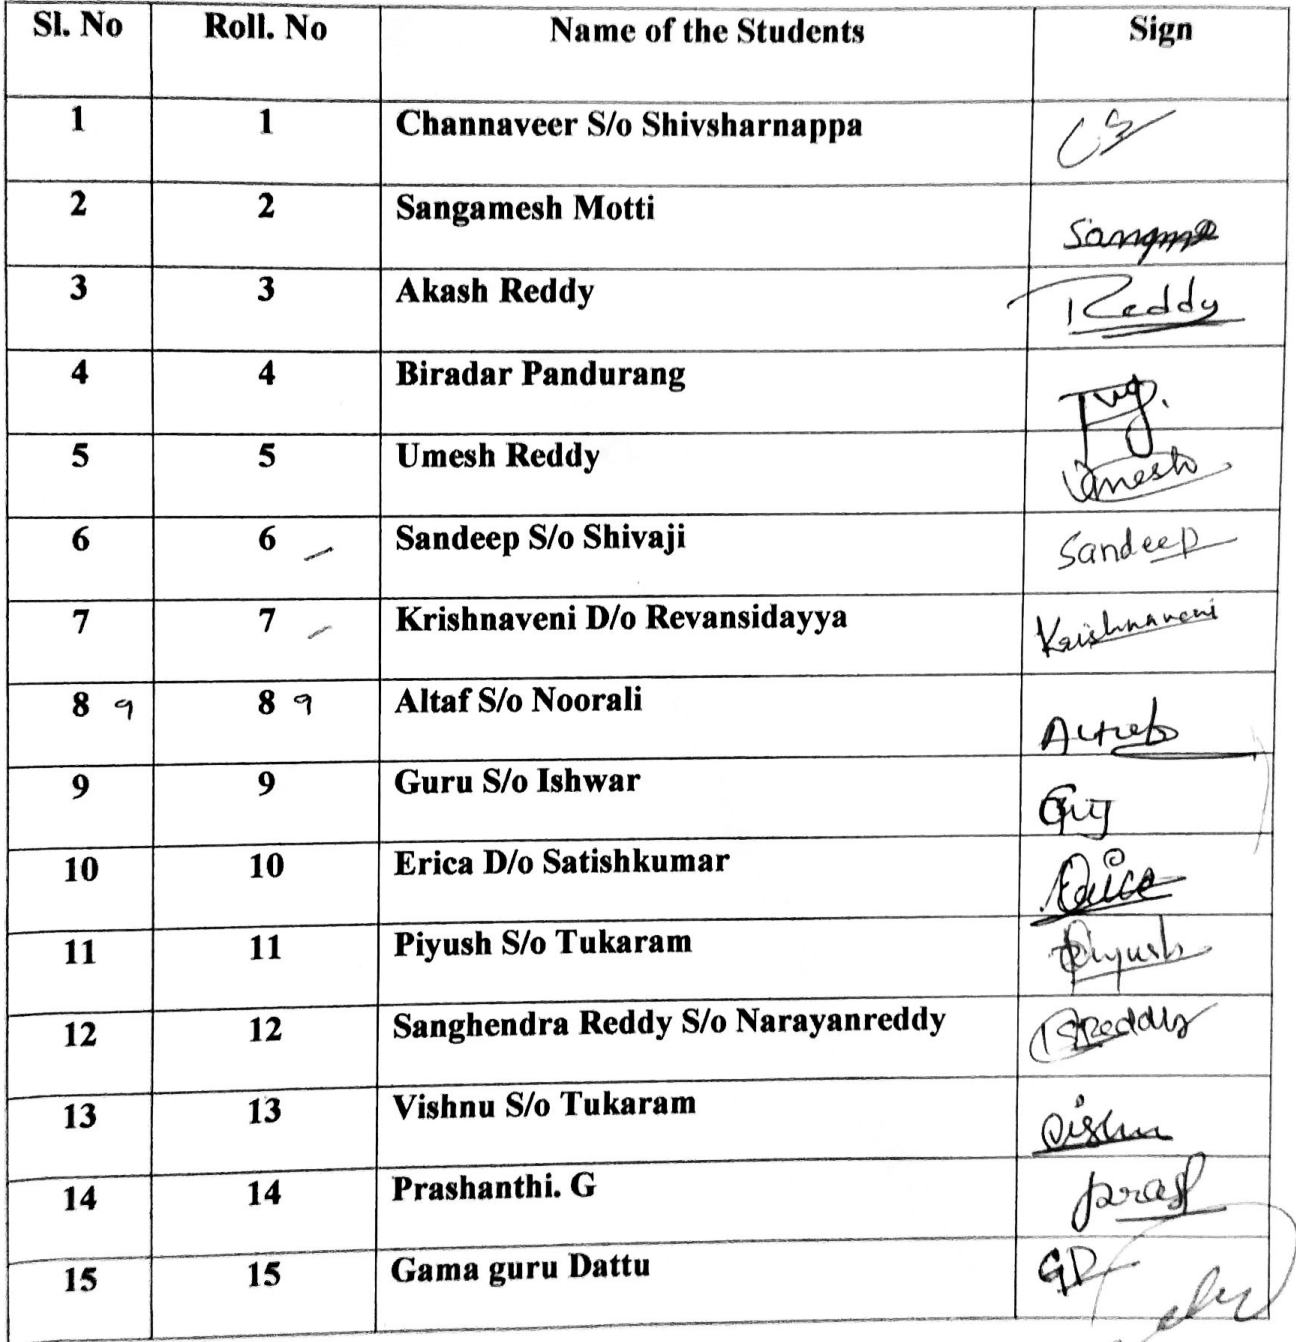 Sl. No Roll. No Name of the Students Sign
1 1 Channaveer S/o Shivsharnappa CS
2 2 Sangamesh Motti
3 3 Akash Reddy Reddy
4 4 Biradar Pandurang
5 5 Umesh Reddy Umesh
6 6 Sandeep S/o Shivaji Sandeep
7 7 Krishnaveni D/o Revansidayya Krishnaveni
8 9 8 9 Altaf S/o Noorali
9 9 Guru S/o Ishwar
10 10 Erica D/o Satishkumar Erica
11 11 Piyush S/o Tukaram Piyush
12 12 Sanghendra Reddy S/o Narayanreddy SReddy
13 13 Vishnu S/o Tukaram
14 14 Prashanthi. G
15 15 Gama guru Dattu GD